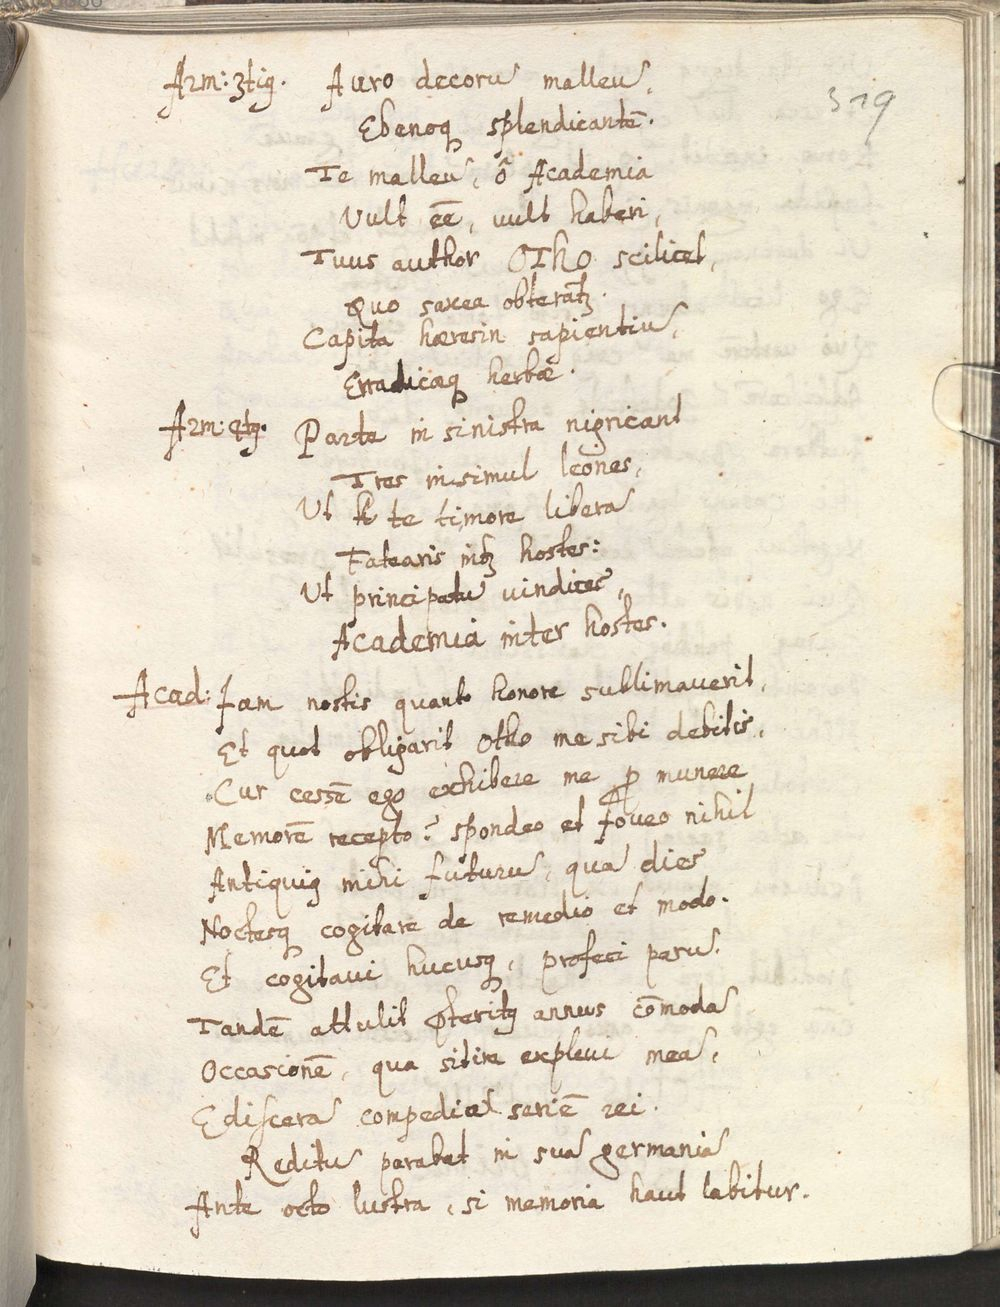 319
Arm: 3tig. Auro decoru͂ malleu͂,
Ebenoq splendicantē.
Te malleu͂, ô Academia
Vult eē, vult haberi,
Tuus author OTho scilicet,
Quo saxea obterat̃
Capita hæresin sapientiu͂,
Erradicæq herbæ.
Arm: 4tg. Parte in sinistra nigricant
Tres insimul leones,
Ut te timore libera͂
Fatearis int̃ hostes:
Ut principatu͂ vindices,
Academia inter hostes.
Acad: Jam nostis quanto honore sublimaverit,
Et quot obligarit Otho me sibi debitis,
Cur cessē ego exhibere me p munere
Memorē recepto? spondeo et foveo nihil
Antiquig mihi futuru͂, qua͂ dies
Noctesq cogitare de remedio et modo.
Et cogitavi hucusq, profeci paru͂.
Tandē attulit pteritg annus cōmoda͂
Occasionē, qua sitire explevi mea͂,
Ediscera͂ compedia͂ seriē rei.
Reditu͂ parabat in sua͂ germania͂
Ante octo lustra, si memoria haut labitur.